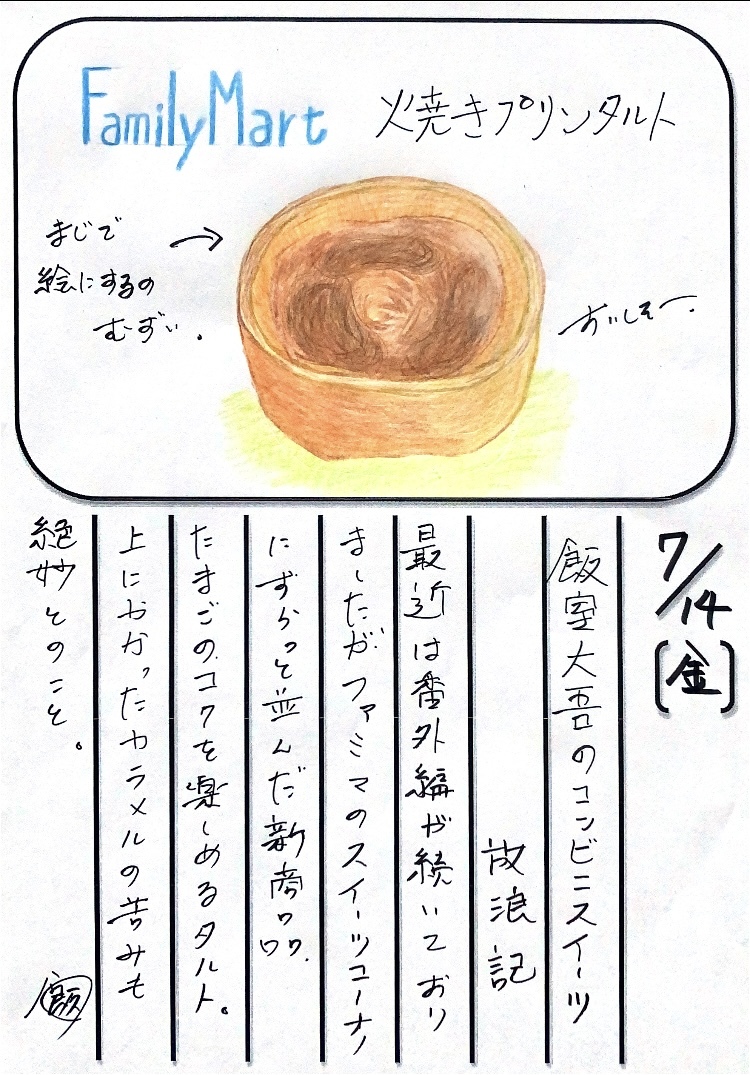 FamilyMart 焼きプリンタルト
まじで
絵にするの
むずい。
おいしそー。
7/14
[金]
飯室大吾のコンビニスイーツ
放浪記
最近は番外編が続いており
ましたがファミマのスイーツコーナー
にずらっと並んだ新商品。
たまごのコクを楽しめるタルト。
上にかかったカラメルの苦みも
絶妙とのこと。
飯